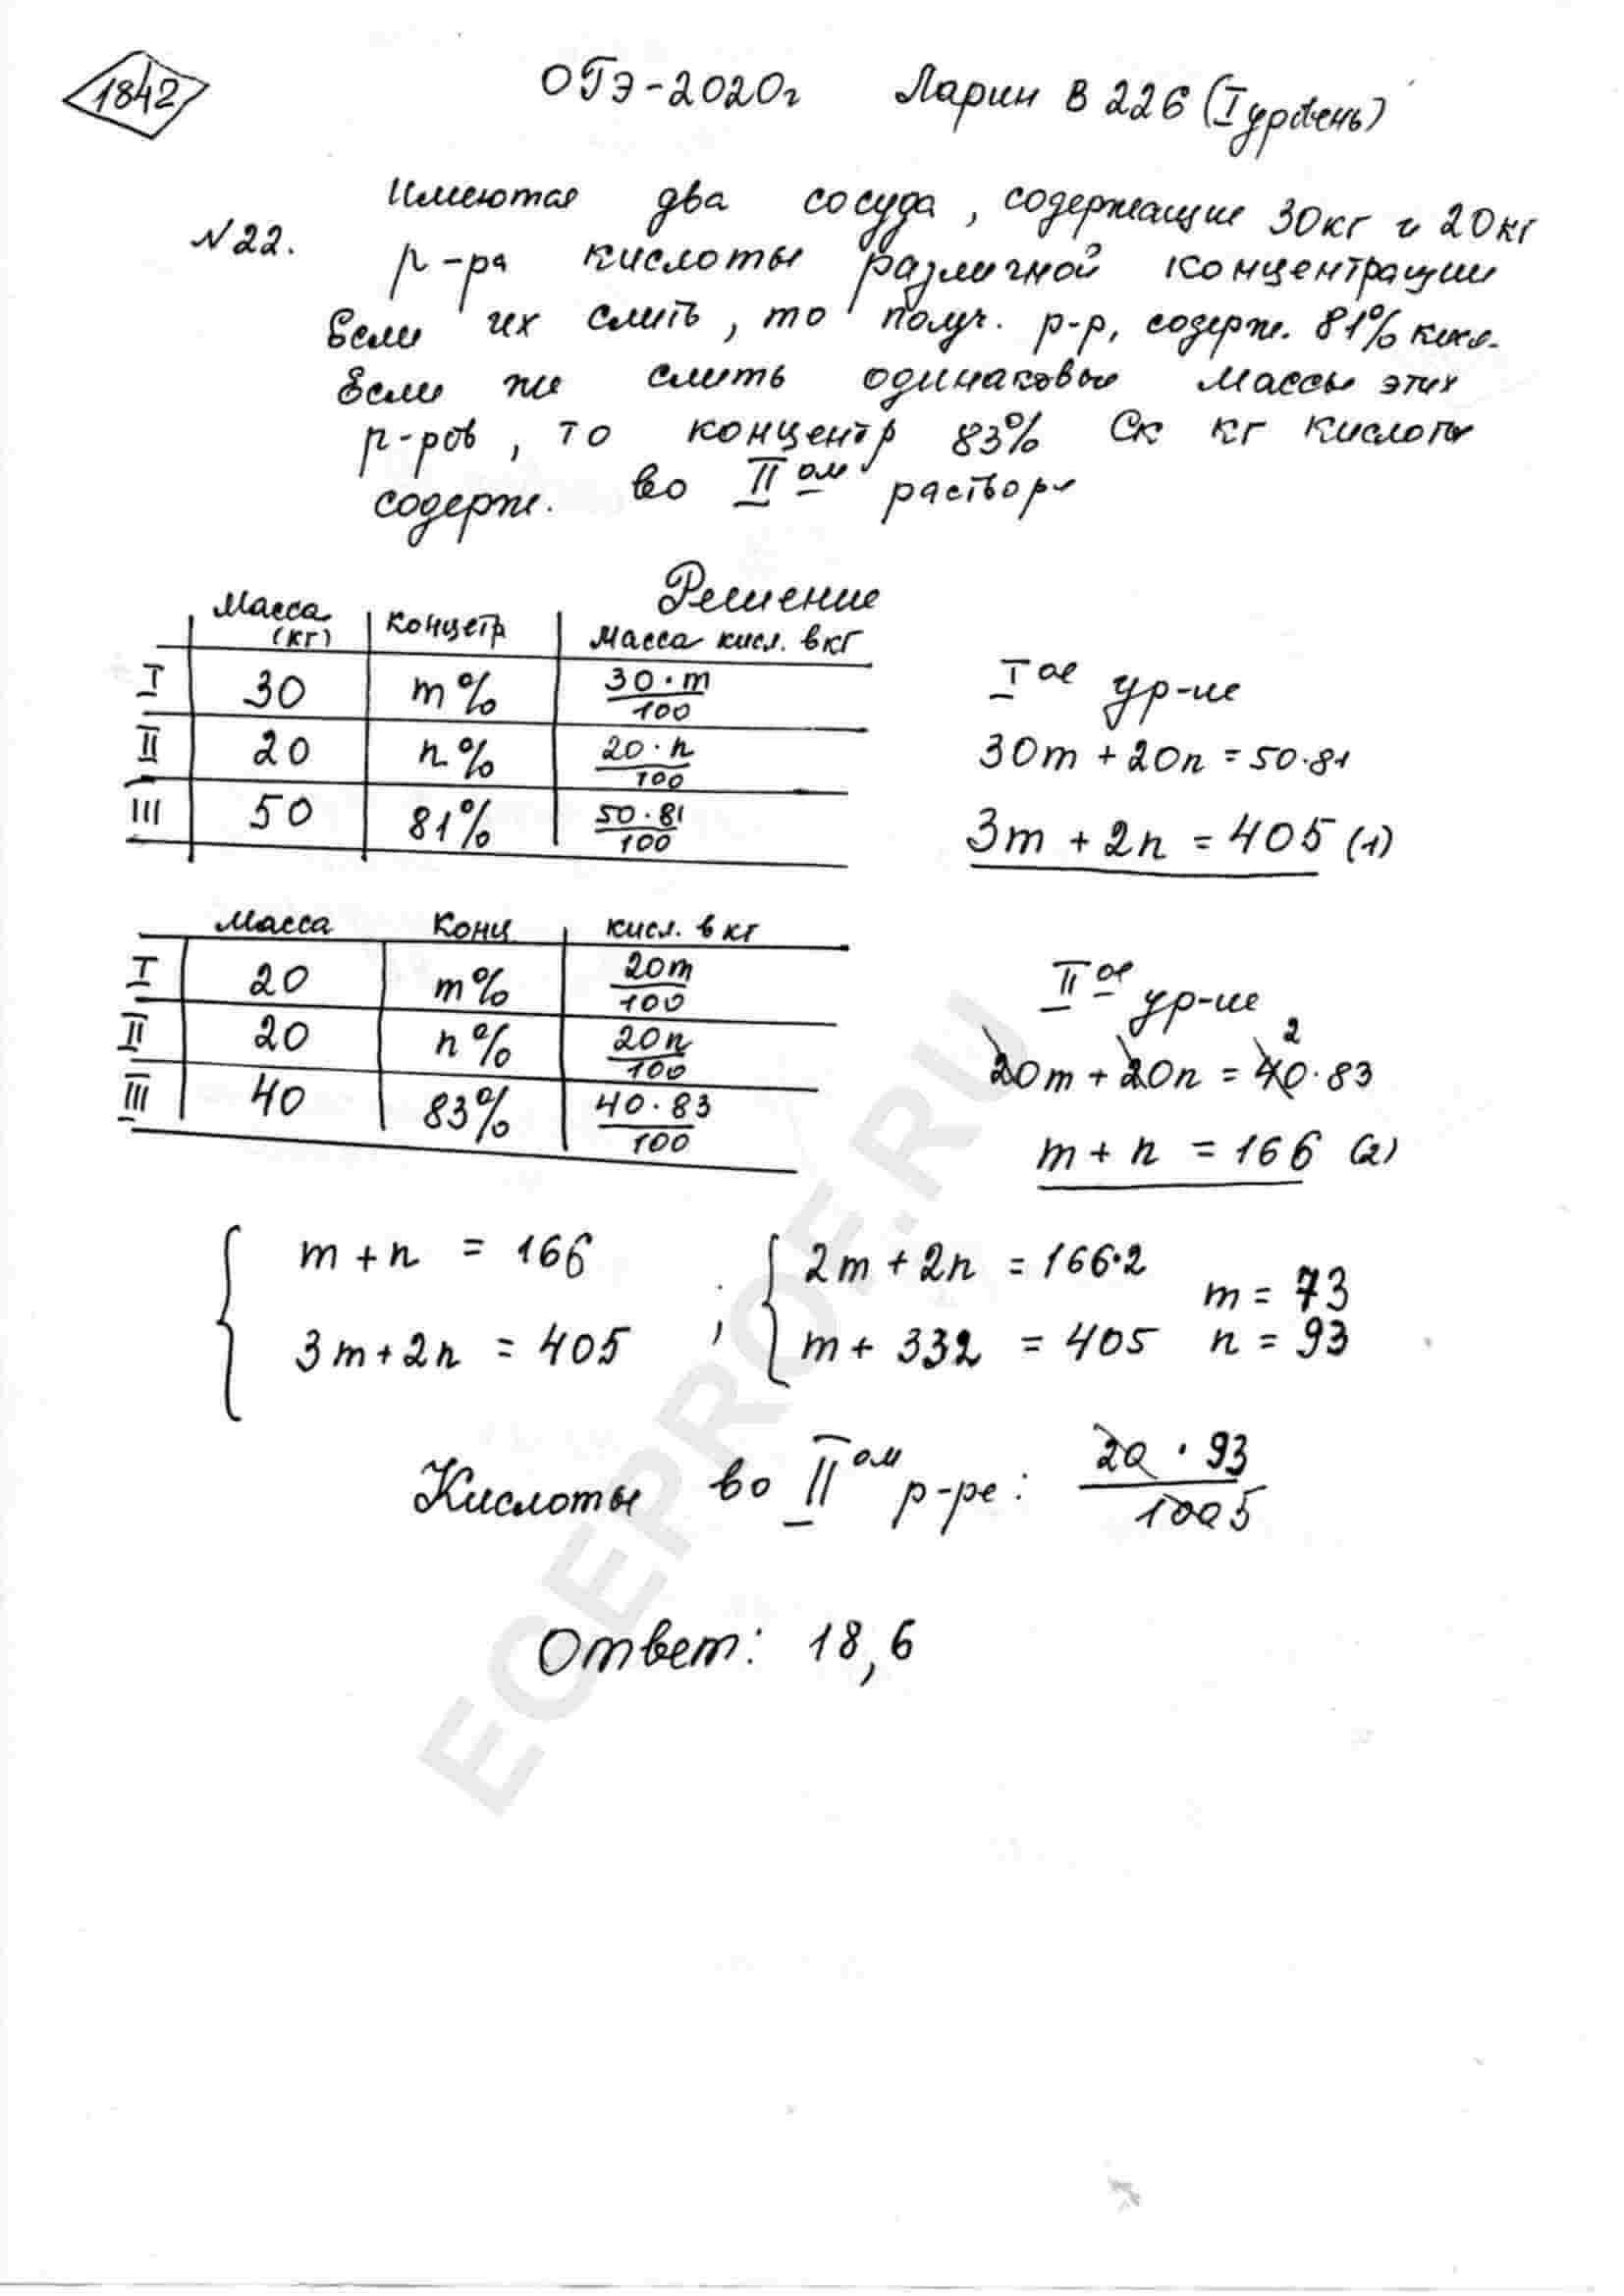 1842
ОГЭ-2020г Ларин В 226 (I уровень)
№22. Имеются два сосуда, содержащие 30кг и 20кг
р-ра кислоты различной концентрации
Если их слить, то получ. р-р, содерж. 81% кисл.
Если же слить одинаковые массы этих
р-ров, то концентр 83% Ск кг кислоты
содерж. во II ом растворе
Решение
Масса (кг) концетр Масса кисл. в кг
I 30 m% 30·m/100
II 20 n% 20·n/100
III 50 81% 50·81/100
I ое ур-ие
30m + 20n = 50·81
3m + 2n = 405 (1)
Масса Конц кисл. в кг
I 20 m% 20m/100
II 20 n% 20n/100
III 40 83% 40·83/100
II ое ур-ие
20m + 20n = 40·83 2
m + n = 166 (2)
{ m + n = 166 ; { 2m + 2n = 166·2 m = 73
3m + 2n = 405 m + 332 = 405 n = 93
Кислоты во II ом р-ре: 20·93/100 5
Ответ: 18,6
EGEPROF.RU